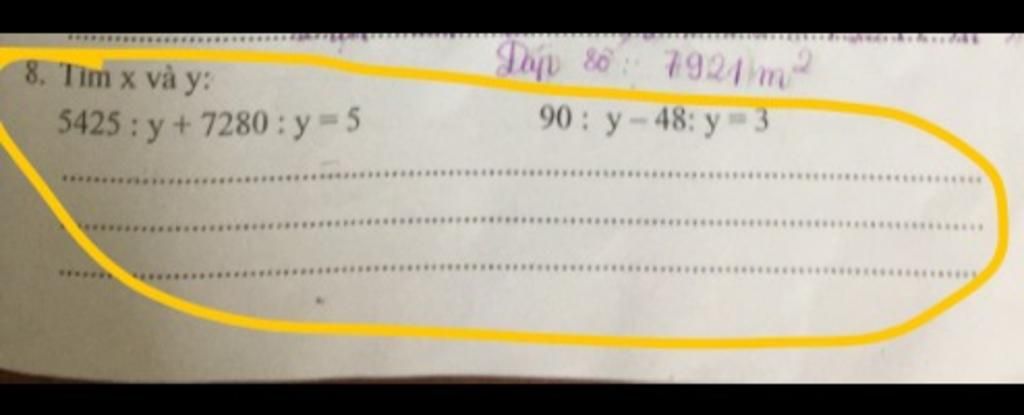 Đáp số: 7921 m²
8. Tìm x và y:
5425 : y + 7280 : y = 5 90 : y – 48: y = 3